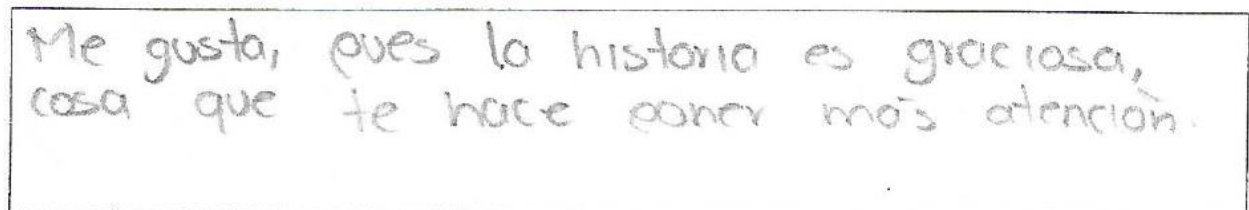 Me gusta, pues la historia es graciosa,
cosa que te hace poner más atención.